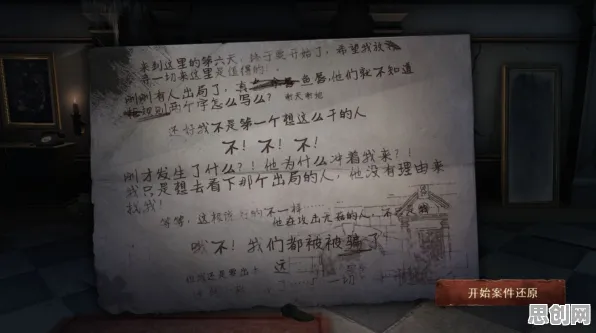 来到这里的第六天，终于要开始了，希望我放弃
一切来这里是值得的！
刚刚有人出局了，真 鱼唇，他们就不知道
规则两个字怎么写么？ 谢天谢地
还好我不是第一个想这么干的人
不！不！不！
刚才发生了什么？！他为什么冲着我来？！
我只是想去看下那个出局的人，他没有理由来
找我！
等等，这和说的不一样
他在攻击无辜的人，不只是我
哦不！我们都被被骗了
远
一切
开始案件还原
思创网